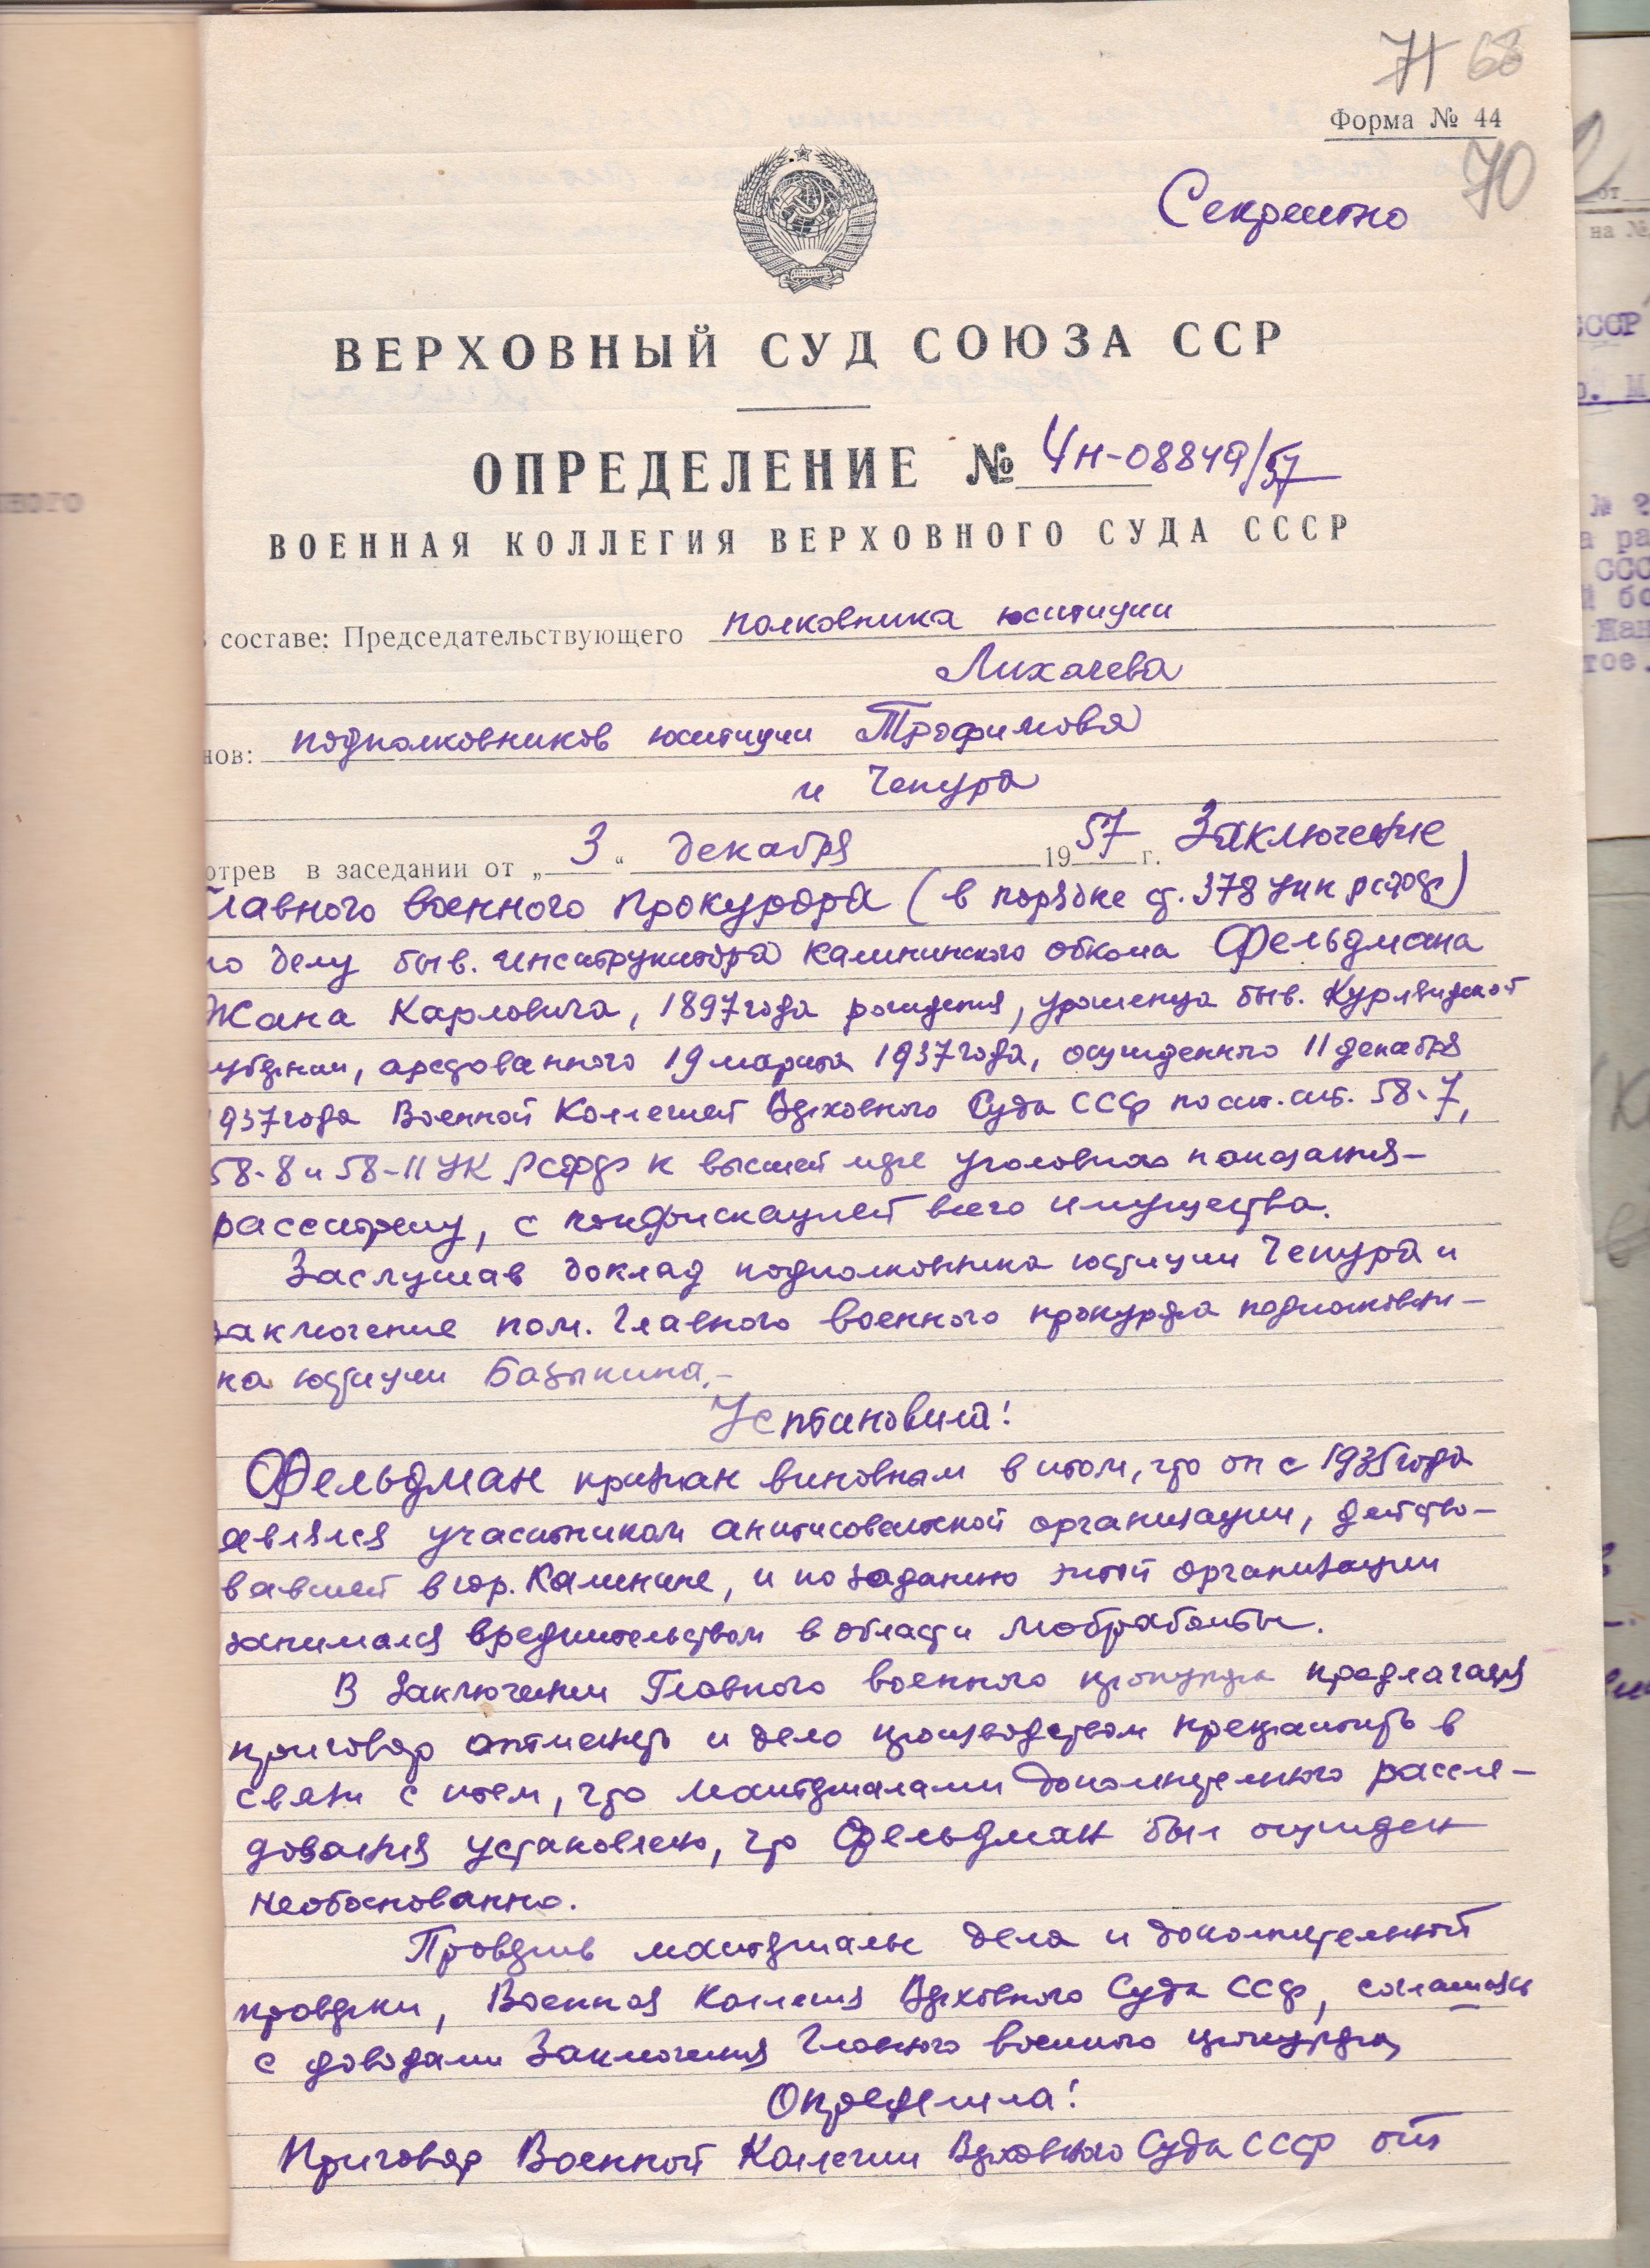 71 68
Форма № 44
70
Секретно
ВЕРХОВНЫЙ СУД СОЮЗА ССР
ОПРЕДЕЛЕНИЕ № 4н-08849/57
ВОЕННАЯ КОЛЛЕГИЯ ВЕРХОВНОГО СУДА СССР
составе: Председательствующего полковника юстиции
Лихачева
нов: подполковников юстиции Трофимова
и Чепура
отрев в заседании от „ 3 “ декабря 1957 г. Заключение
Главного военного прокурора (в порядке ст. 378 УПК РСФСР)
по делу быв. инструктора Калининского обкома Фельдмана
Жана Карловича, 1897 года рождения, уроженца быв. Курляндской
губернии, арестованного 19 марта 1937 года, осужденного 11 декабря
1937 года Военной Коллегией Верховного Суда СССР по ст.ст. 58-7,
58-8 и 58-11 УК РСФСР к высшей мере уголовного наказания –
расстрелу, с конфискацией всего имущества.
Заслушав доклад подполковника юстиции Чепура и
заключение пом. Главного военного прокурора подполковни-
ка юстиции Базыкина,–
Установила:
Фельдман признан виновным в том, что он с 1935 года
являлся участником антисоветской организации, действо-
вавшей в гор. Калинине, и по заданию этой организации
занимался вредительством в области мобработы.
В заключении Главного военного прокурора предлагается
приговор отменить и дело производством прекратить в
связи с тем, что материалами дополнительного рассле-
дования установлено, что Фельдман был осужден
необоснованно.
Проверив материалы дела и дополнительной
проверки, Военная Коллегия Верховного Суда СССР, соглашаясь
с доводами Заключения Главного военного прокурора,
Определила:
Приговор Военной Коллегии Верховного Суда СССР от
ного
от
на №
СССР